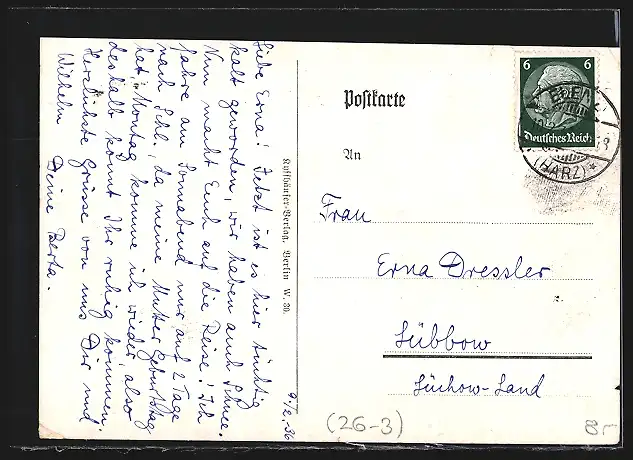 9./2. 36
Liebe Erna! Jetzt ist es hier tüchtig
kalt geworden, wir haben auch Schnee.
Nun macht Euch auf die Reise! Ich
fahre am Sonnabend nur auf 2 Tage
nach Schl., da meine Mutter Geburtstag
hat. Montag komme ich wieder, also
deshalb könnt Ihr ruhig kommen.
Herzlichste Grüsse von uns Dir und
Wilhelm Deine Berta.
Kyffhäuser-Verlag, Berlin W. 30.
Postkarte
An
Frau
Erna Dressler
Lübbow
Lüchow-Land
6 6
Deutsches Reich
(HARZ)
(26-3)